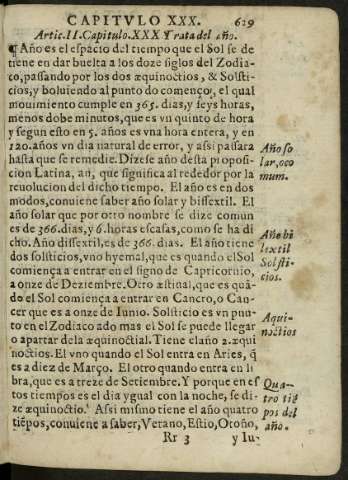 CAPITVLO XXX. 629
Artic.II.Capitulo.XXX Trata del año.
¶ Año es el espacio del tiempo que el Sol se de
tiene en dar buelta a los doze siglos del Zodia-
co, passando por los dos æquinoctios, & Solsti-
cios, y boluiendo al punto do començo, el qual
mouimiento cumple en 365. dias, y seys horas,
menos dobe minutos, que es vn quinto de hora
y segun esto en 5. años es vna hora entera, y en
120. años vn dia natural de error, y assi passara
hasta que se remedie. Dizese año desta proposi-
cion Latina, an, que significa al rededor por la
reuolucion del dicho tiempo. El año es en dos
modos, conuiene saber año solar y bissextil. El
año solar que por otro nombre se dize comun
es de 366. dias, y 6. horas escasas, como se ha di
cho. Año dissextil, es de 366. dias. El año tiene
dos solsticios, vno hyemal, que es quando el Sol
comiença a entrar en el signo de Capricornio,
a onze de Deziembre. Otro æstinal, que es quã-
do el Sol comiença a entrar en Cancro, o Can-
cer que es a onze de Iunio. Solsticio es vn pun-
to en el Zodiaco ado mas el Sol se puede llegar
o apartar dela æquinoctial. Tiene el año 2. æqui
noctios. El vno quando el Sol entra en Aries, q̃
es a diez de Março. El otro quando entra en li
bra, que es a treze de Setiembre. Y porque en es
tos tiempos es el dia ygual con la noche, se di-
ze æquinoctio. Assi mismo tiene el año quatro
tiẽpos, conuiene a saber, Verano, Estio, Otoño,
Rr 3 y Iu-
Año so
lar, o co
mum.
Año bi
sextil
Solsti-
cios.
Aqui-
noctios
Qua-
tro tiẽ
pos del
año.